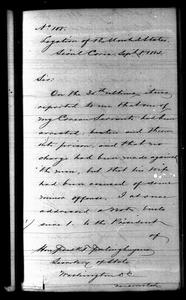 No 105.
Legation of the United States
Seoul Corea Sept 1st 1884
Sir:
On the 30th ultimo, it was
reported to me that one of
my Corean Servants, had been
arrested, beaten and thrown
into prison, and that no
charge had been made against
the man, but that his wife
had been accused of some
minor offense. I at once
addressed a Note,
to the President
of
Hon. Fredk T. Frelinghuysen
Secretary of State
Washington D.C.